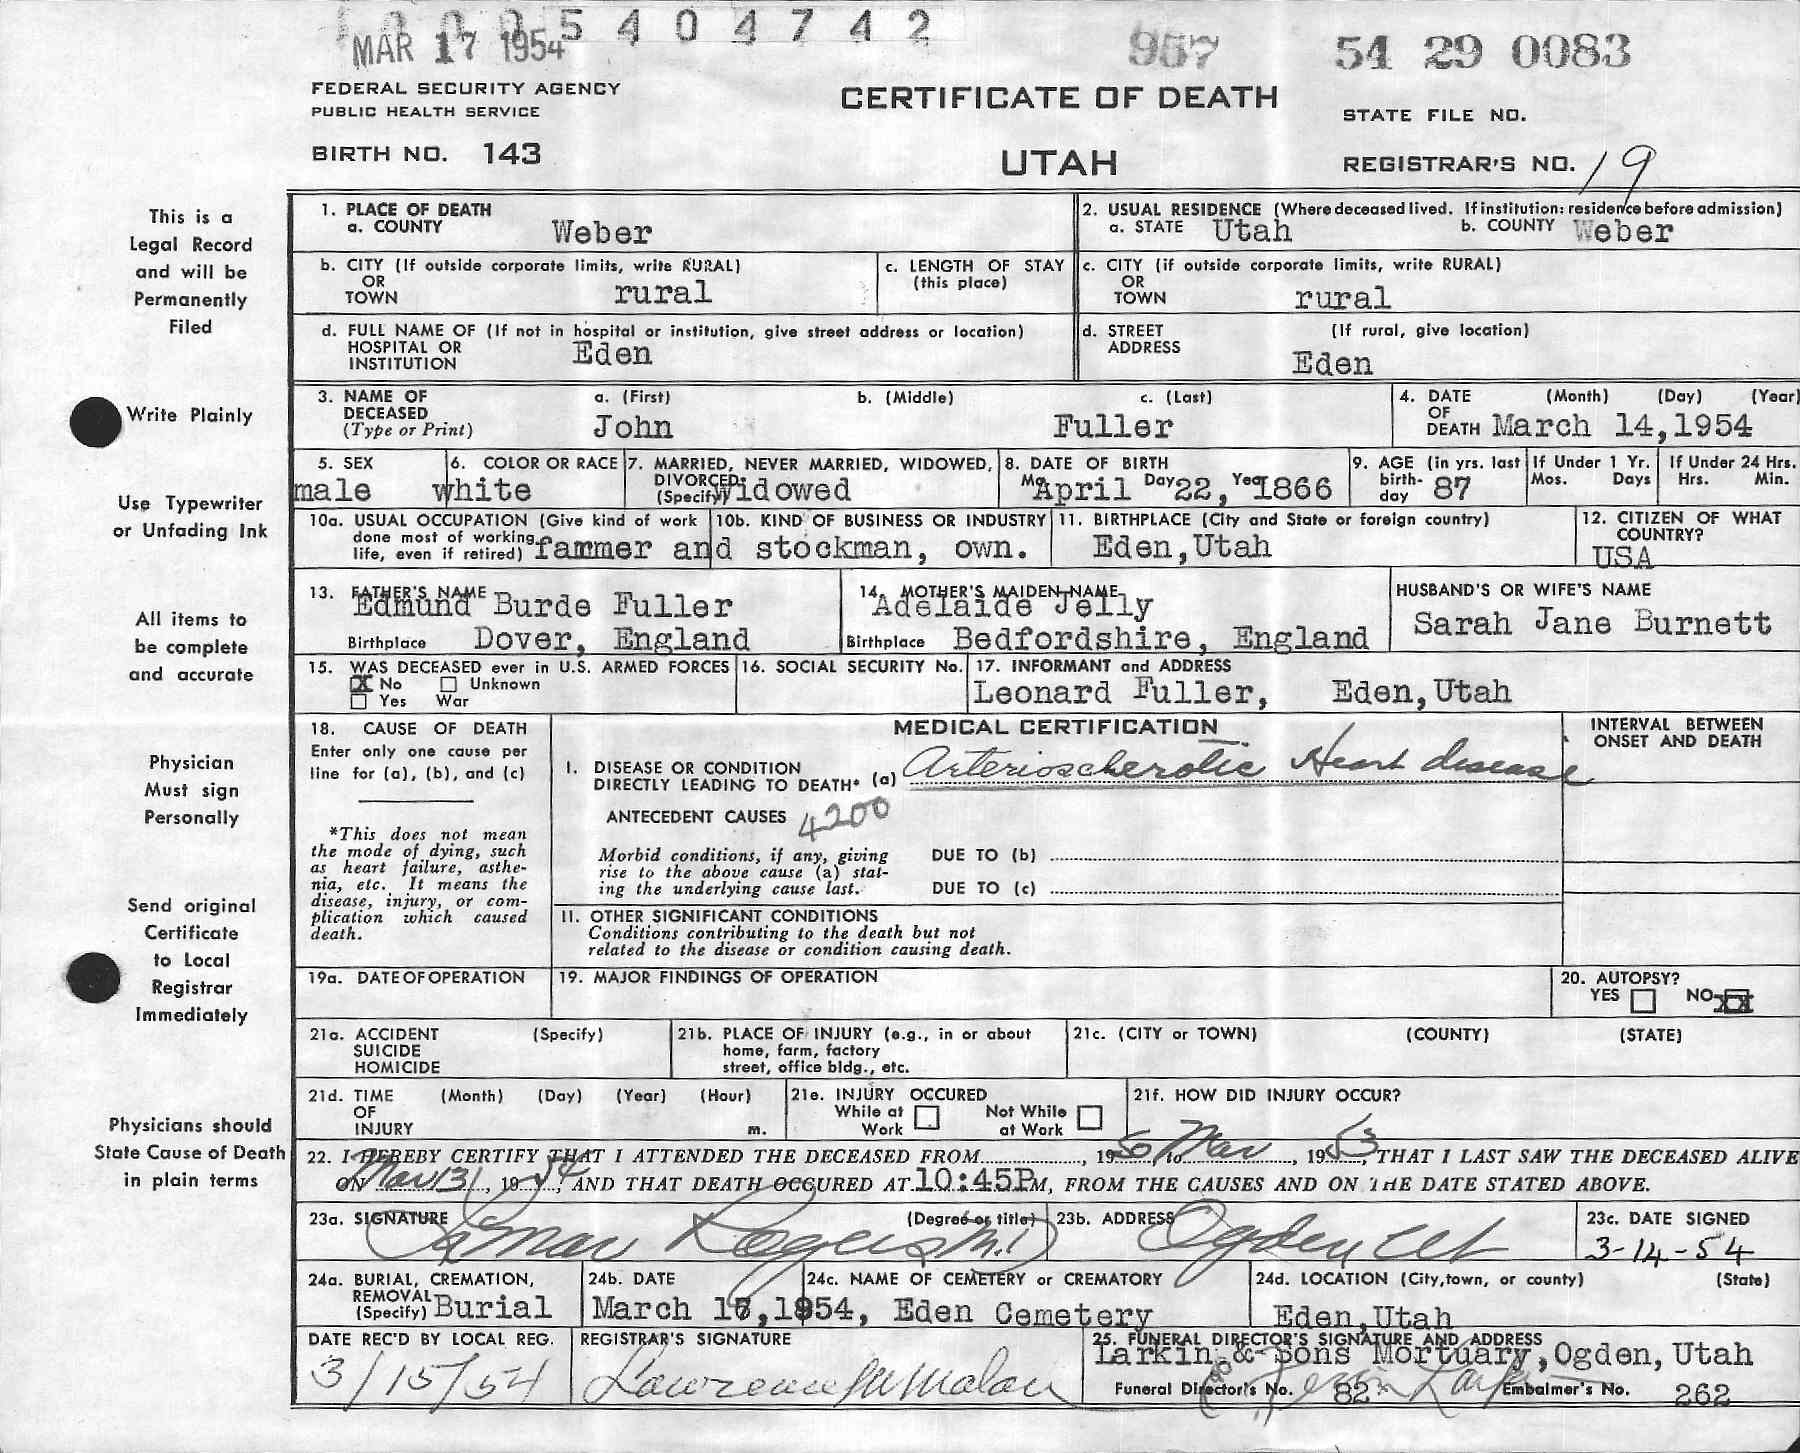 5 4 0 4 7 4 2
MAR 17 1954
957 54 29 0083
FEDERAL SECURITY AGENCY
PUBLIC HEALTH SERVICE
CERTIFICATE OF DEATH
STATE FILE NO.
BIRTH NO. 143
UTAH
REGISTRAR'S NO. 19
This is a
Legal Record
and will be
Permanently
Filed
Write Plainly
Use Typewriter
or Unfading Ink
All items to
be complete
and accurate
Physician
Must sign
Personally
Send original
Certificate
to Local
Registrar
Immediately
Physicians should
State Cause of Death
in plain terms
1. PLACE OF DEATH
a. COUNTY Weber
2. USUAL RESIDENCE (Where deceased lived. If institution: residence before admission)
a. STATE Utah b. COUNTY Weber
b. CITY (If outside corporate limits, write RURAL)
OR
TOWN rural
c. LENGTH OF STAY
(this place)
c. CITY (if outside corporate limits, write RURAL)
OR
TOWN rural
d. FULL NAME OF (If not in hospital or institution, give street address or location)
HOSPITAL OR
INSTITUTION Eden
d. STREET (If rural, give location)
ADDRESS
Eden
3. NAME OF a. (First) b. (Middle) c. (Last)
DECEASED
(Type or Print) John Fuller
4. DATE (Month) (Day) (Year)
OF
DEATH March 14,1954
5. SEX
male
6. COLOR OR RACE
white
7. MARRIED, NEVER MARRIED, WIDOWED,
DIVORCED
(Specify) Widowed
8. DATE OF BIRTH
April Day 22, Year 1866
9. AGE (in yrs. last
birth-
day 87
If Under 1 Yr.
Mos. Days
If Under 24 Hrs.
Hrs. Min.
10a. USUAL OCCUPATION (Give kind of work
done most of working
life, even if retired) farmer and stockman, own.
10b. KIND OF BUSINESS OR INDUSTRY
11. BIRTHPLACE (City and State or foreign country)
Eden,Utah
12. CITIZEN OF WHAT
COUNTRY?
USA
13. FATHER'S NAME
Edmund Burde Fuller
Birthplace Dover, England
14. MOTHER'S MAIDEN NAME
Adelaide Jelly
Birthplace Bedfordshire, England
HUSBAND'S OR WIFE'S NAME
Sarah Jane Burnett
15. WAS DECEASED ever in U.S. ARMED FORCES
X No Unknown
Yes War
16. SOCIAL SECURITY No.
17. INFORMANT and ADDRESS
Leonard Fuller, Eden,Utah
18. CAUSE OF DEATH
Enter only one cause per
line for (a), (b), and (c)
*This does not mean
the mode of dying, such
as heart failure, asthe-
nia, etc. It means the
disease, injury, or com-
plication which caused
death.
MEDICAL CERTIFICATION
INTERVAL BETWEEN
ONSET AND DEATH
I. DISEASE OR CONDITION
DIRECTLY LEADING TO DEATH* (a) Arterioscherotic Heart disease
ANTECEDENT CAUSES 4200
Morbid conditions, if any, giving
rise to the above cause (a) stat-
ing the underlying cause last.
DUE TO (b)
DUE TO (c)
II. OTHER SIGNIFICANT CONDITIONS
Conditions contributing to the death but not
related to the disease or condition causing death.
19a. DATE OF OPERATION
19. MAJOR FINDINGS OF OPERATION
20. AUTOPSY?
YES NO XX
21a. ACCIDENT (Specify)
SUICIDE
HOMICIDE
21b. PLACE OF INJURY (e.g., in or about
home, farm, factory
street, office bldg., etc.
21c. (CITY or TOWN) (COUNTY) (STATE)
21d. TIME (Month) (Day) (Year) (Hour)
OF
INJURY m.
21e. INJURY OCCURED
While at Work
Not While at Work
21f. HOW DID INJURY OCCUR?
22. I HEREBY CERTIFY THAT I ATTENDED THE DECEASED FROM , 1950, to Mar , 1953, THAT I LAST SAW THE DECEASED ALIVE
ON Mar 13, 1954, AND THAT DEATH OCCURED AT 10:45P M, FROM THE CAUSES AND ON THE DATE STATED ABOVE.
23a. SIGNATURE (Degree or title)
Rogers M.D
23b. ADDRESS
Ogden Ut
23c. DATE SIGNED
3-14-54
24a. BURIAL, CREMATION,
REMOVAL
(Specify) Burial
24b. DATE
March 17,1954,
24c. NAME OF CEMETERY or CREMATORY
Eden Cemetery
24d. LOCATION (City,town, or county) (State)
Eden,Utah
DATE REC'D BY LOCAL REG.
3/15/54
REGISTRAR'S SIGNATURE
Lawrence M Malan
25. FUNERAL DIRECTOR'S SIGNATURE AND ADDRESS
Larkin & Sons Mortuary,Ogden, Utah
Funeral Director's No. 82 Embalmer's No. 262